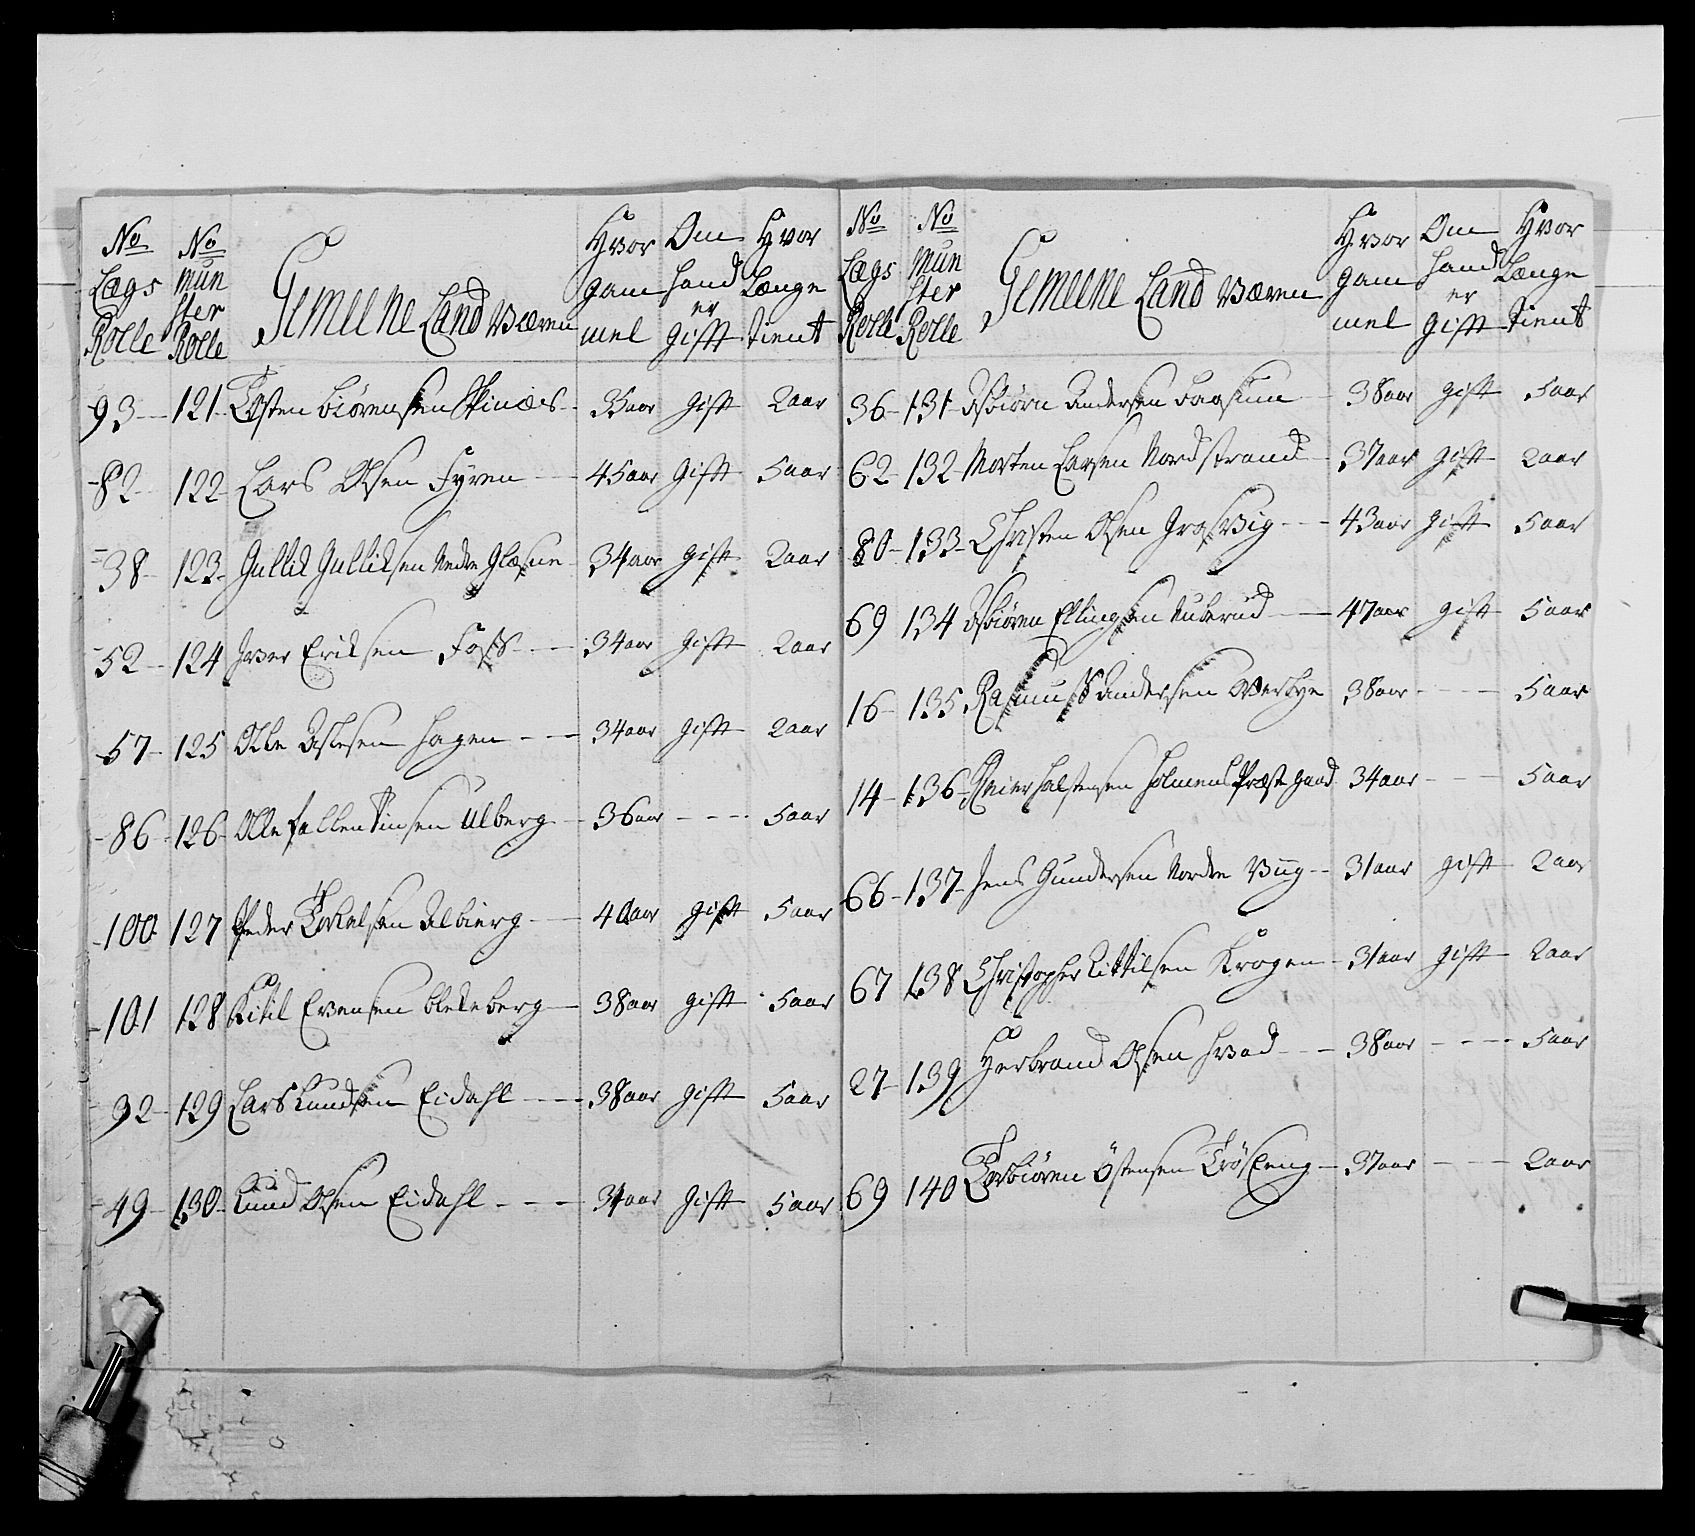 No Lægs Rolle | No Mün ster Rolle | Gemeene Land Værn | Hvor gam mel | Om hand er Gifft | Hvor Længe tient
93 121 Tosten Biörensen Skinæs 35 aar gift 2 aar
82 122 Lars Olsen Fyren 45 aar Gift 5 aar
38 123 Gullik Gulliksen Nedre Glæsne 34 aar gift 2 aar
52 124 Iver Eriksen Foss 34 aar gift 2 aar
57 125 Olle Aslesen Hagen 34 aar gift 2 aar
86 126 Olle fallentinsen Ulberg 36 aar - - - 5 aar
100 127 Peder Torkelsen Albierg 40 aar gift 5 aar
101 128 Kitil Evensen Blekeberg 38 aar gift 5 aar
92 129 Lars Knudsen Eidahl 38 aar gift 5 aar
49 130 Knud Olsen Eidahl 34 aar gift 5 aar
No Lægs Rolle | No Mün ster Rolle | Gemeene Land Værn | Hvor gam mel | Om hand er gifft | Hvor Længe tient
36 131 Asbiörn Andersen 38 aar gift 5 aar
62 132 Morten Larsen Nordstrand 37 aar gift 2 aar
80 133 Christen Olsen Grosvig 43 aar gift 5 aar
69 134 Asbiören Ellingsen Ruberud 47 aar gift 5 aar
16 135 Rasmuss Andersen Overbye 38 aar - - - 5 aar
14 136 Reier Halstensen Holmens Præste gaard 34 aar - - - 5 aar
66 137 Jens Gundersen Nordre Viig 31 aar gift 2 aar
67 138 Christopher Kittilsen Krogen 31 aar gift 2 aar
27 139 Herbrand Olsen Hvad 38 aar - - - 5 aar
69 140 Torbiören Östensen Trösleng 37 aar - - - 2 aar